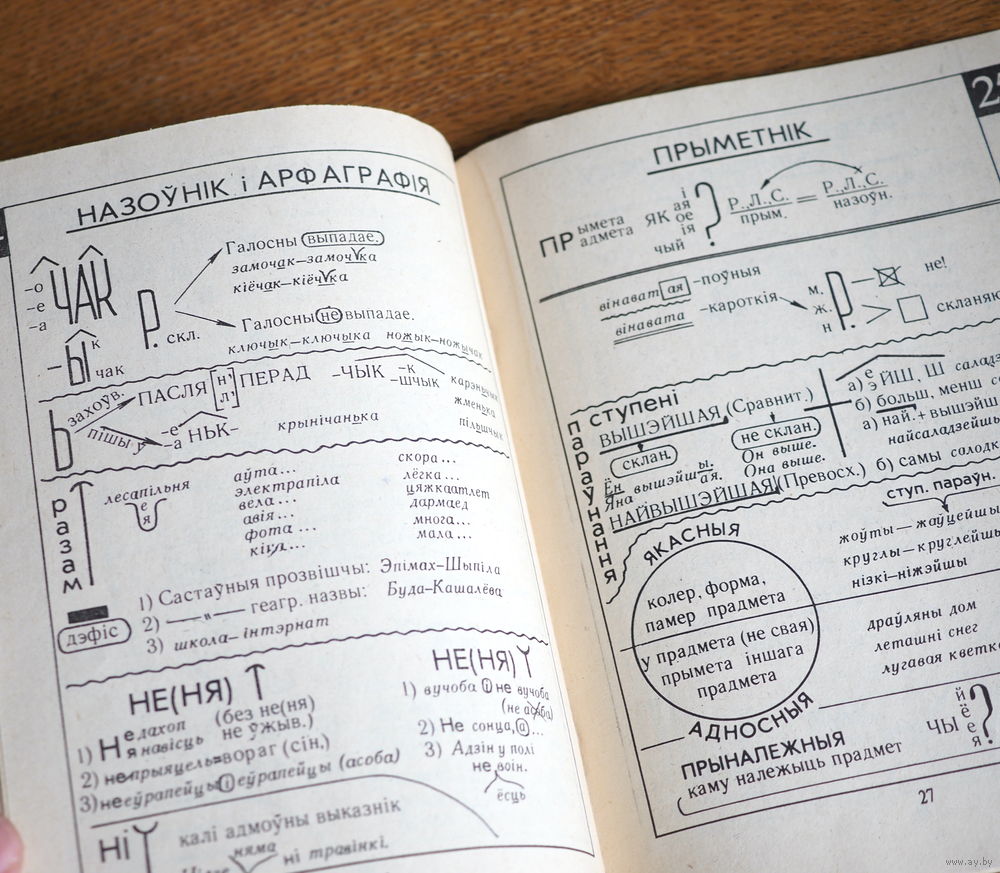 НАЗОЎНІК і АРФАГРАФІЯ
-о
-е
-а
ЧАК
-Ы к
чак
Р. скл.
Галосны выпадае.
замочак—замочка
кіёчак—кіёчка
Галосны не выпадае.
ключык—ключыка ножык—ножычак
Ь захоўв. ПАСЛЯ [н’ л’] ПЕРАД -ЧЫК -к -ШЧЫК
пішы -е -а НЬК-
крынічанька
карэньчык
жменька
пільшчык
разам
лесапільня
е
я
аўта...
электрапіла
вела...
авія...
фота...
скора...
лёгка...
цяжкаатлет
дармаед
многа...
мала...
дэфіс
1) Састаўныя прозвішчы: Эпімах-Шыпіла
2) —„— геагр. назвы: Буда-Кашалёва
3) школа-інтэрнат
НЕ(НЯ)
1) Недахоп
Нянавісць
(без не(ня)
не ўжыв.)
2) непрыяцель=вораг (сін.)
3) нееўрапейцы і еўрапейцы (асоба)
НЕ(НЯ)
1) вучоба і не вучоба
(не асоба)
2) Не сонца, а...
3) Адзін у полі
не воін.
ёсць
НІ
калі адмоўны выказнік
няма
ні травінкі.
ПРЫМЕТНІК
ПРымета
адмета
ЯК
і
ая
ое
ія
чый
?
Р.,Л.,С. = Р.,Л.,С.
прым. назоўн.
вінаватая —поўныя
вінавата —кароткія
м.
ж.
н
Р.
не!
скланяю
ступені
параўнання
ВЫШЭЙШАЯ (Сравнит.)
склан.
не склан.
Ён вышэйшы.
Яна вышэйшая.
Он выше.
Она выше.
НАЙВЫШЭЙШАЯ (Превосх.)
а) е э ЙШ, Ш саладз
б) больш, менш со
а) най.+вышэйш
найсаладзейшы
б) самы салодк
ЯКАСНЫЯ
колер, форма,
памер прадмета
у прадмета (не свая)
прымета іншага
прадмета
АДНОСНЫЯ
ступ. параўн.
жоўты—жаўцейшы
круглы—круглейшы
нізкі—ніжэйшы
драўляны дом
леташні снег
лугавая кветка
ПРЫНАЛЕЖНЫЯ
каму належыць прадмет
ЧЫ
й
ё
е
я
?
27
www.ay.by